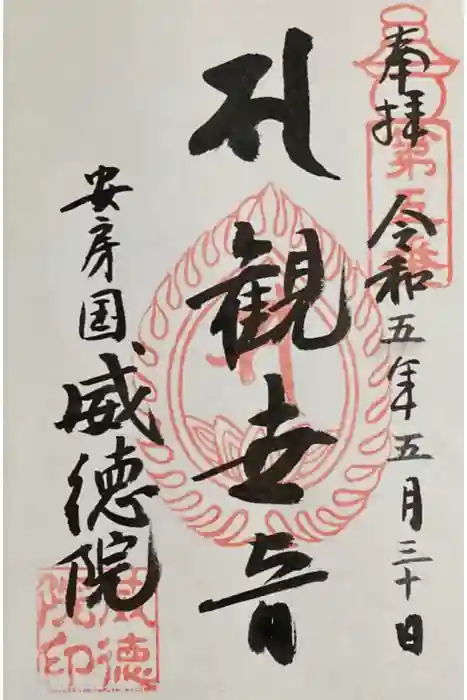 奉拝 令和五年五月三十日
第五番
観世音
安房国 威徳院
威徳院印